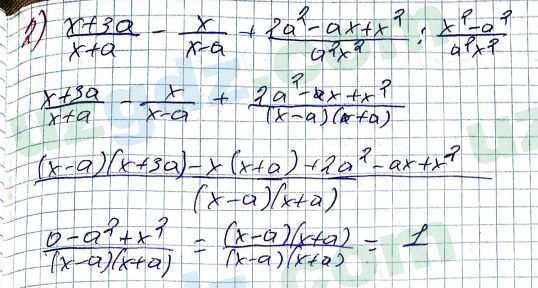 2) (x+3a)/(x+a) - x/(x-a) + (2a²-ax+x²)/(a²x²) : (x²-a²)/(a²x²)
(x+3a)/(x+a) - x/(x-a) + (2a²-ax+x²)/((x-a)(x+a))
((x-a)(x+3a)-x(x+a)+2a²-ax+x²)/((x-a)(x+a))
(0-a²+x²)/((x-a)(x+a)) = ((x-a)(x+a))/((x-a)(x+a)) = 1